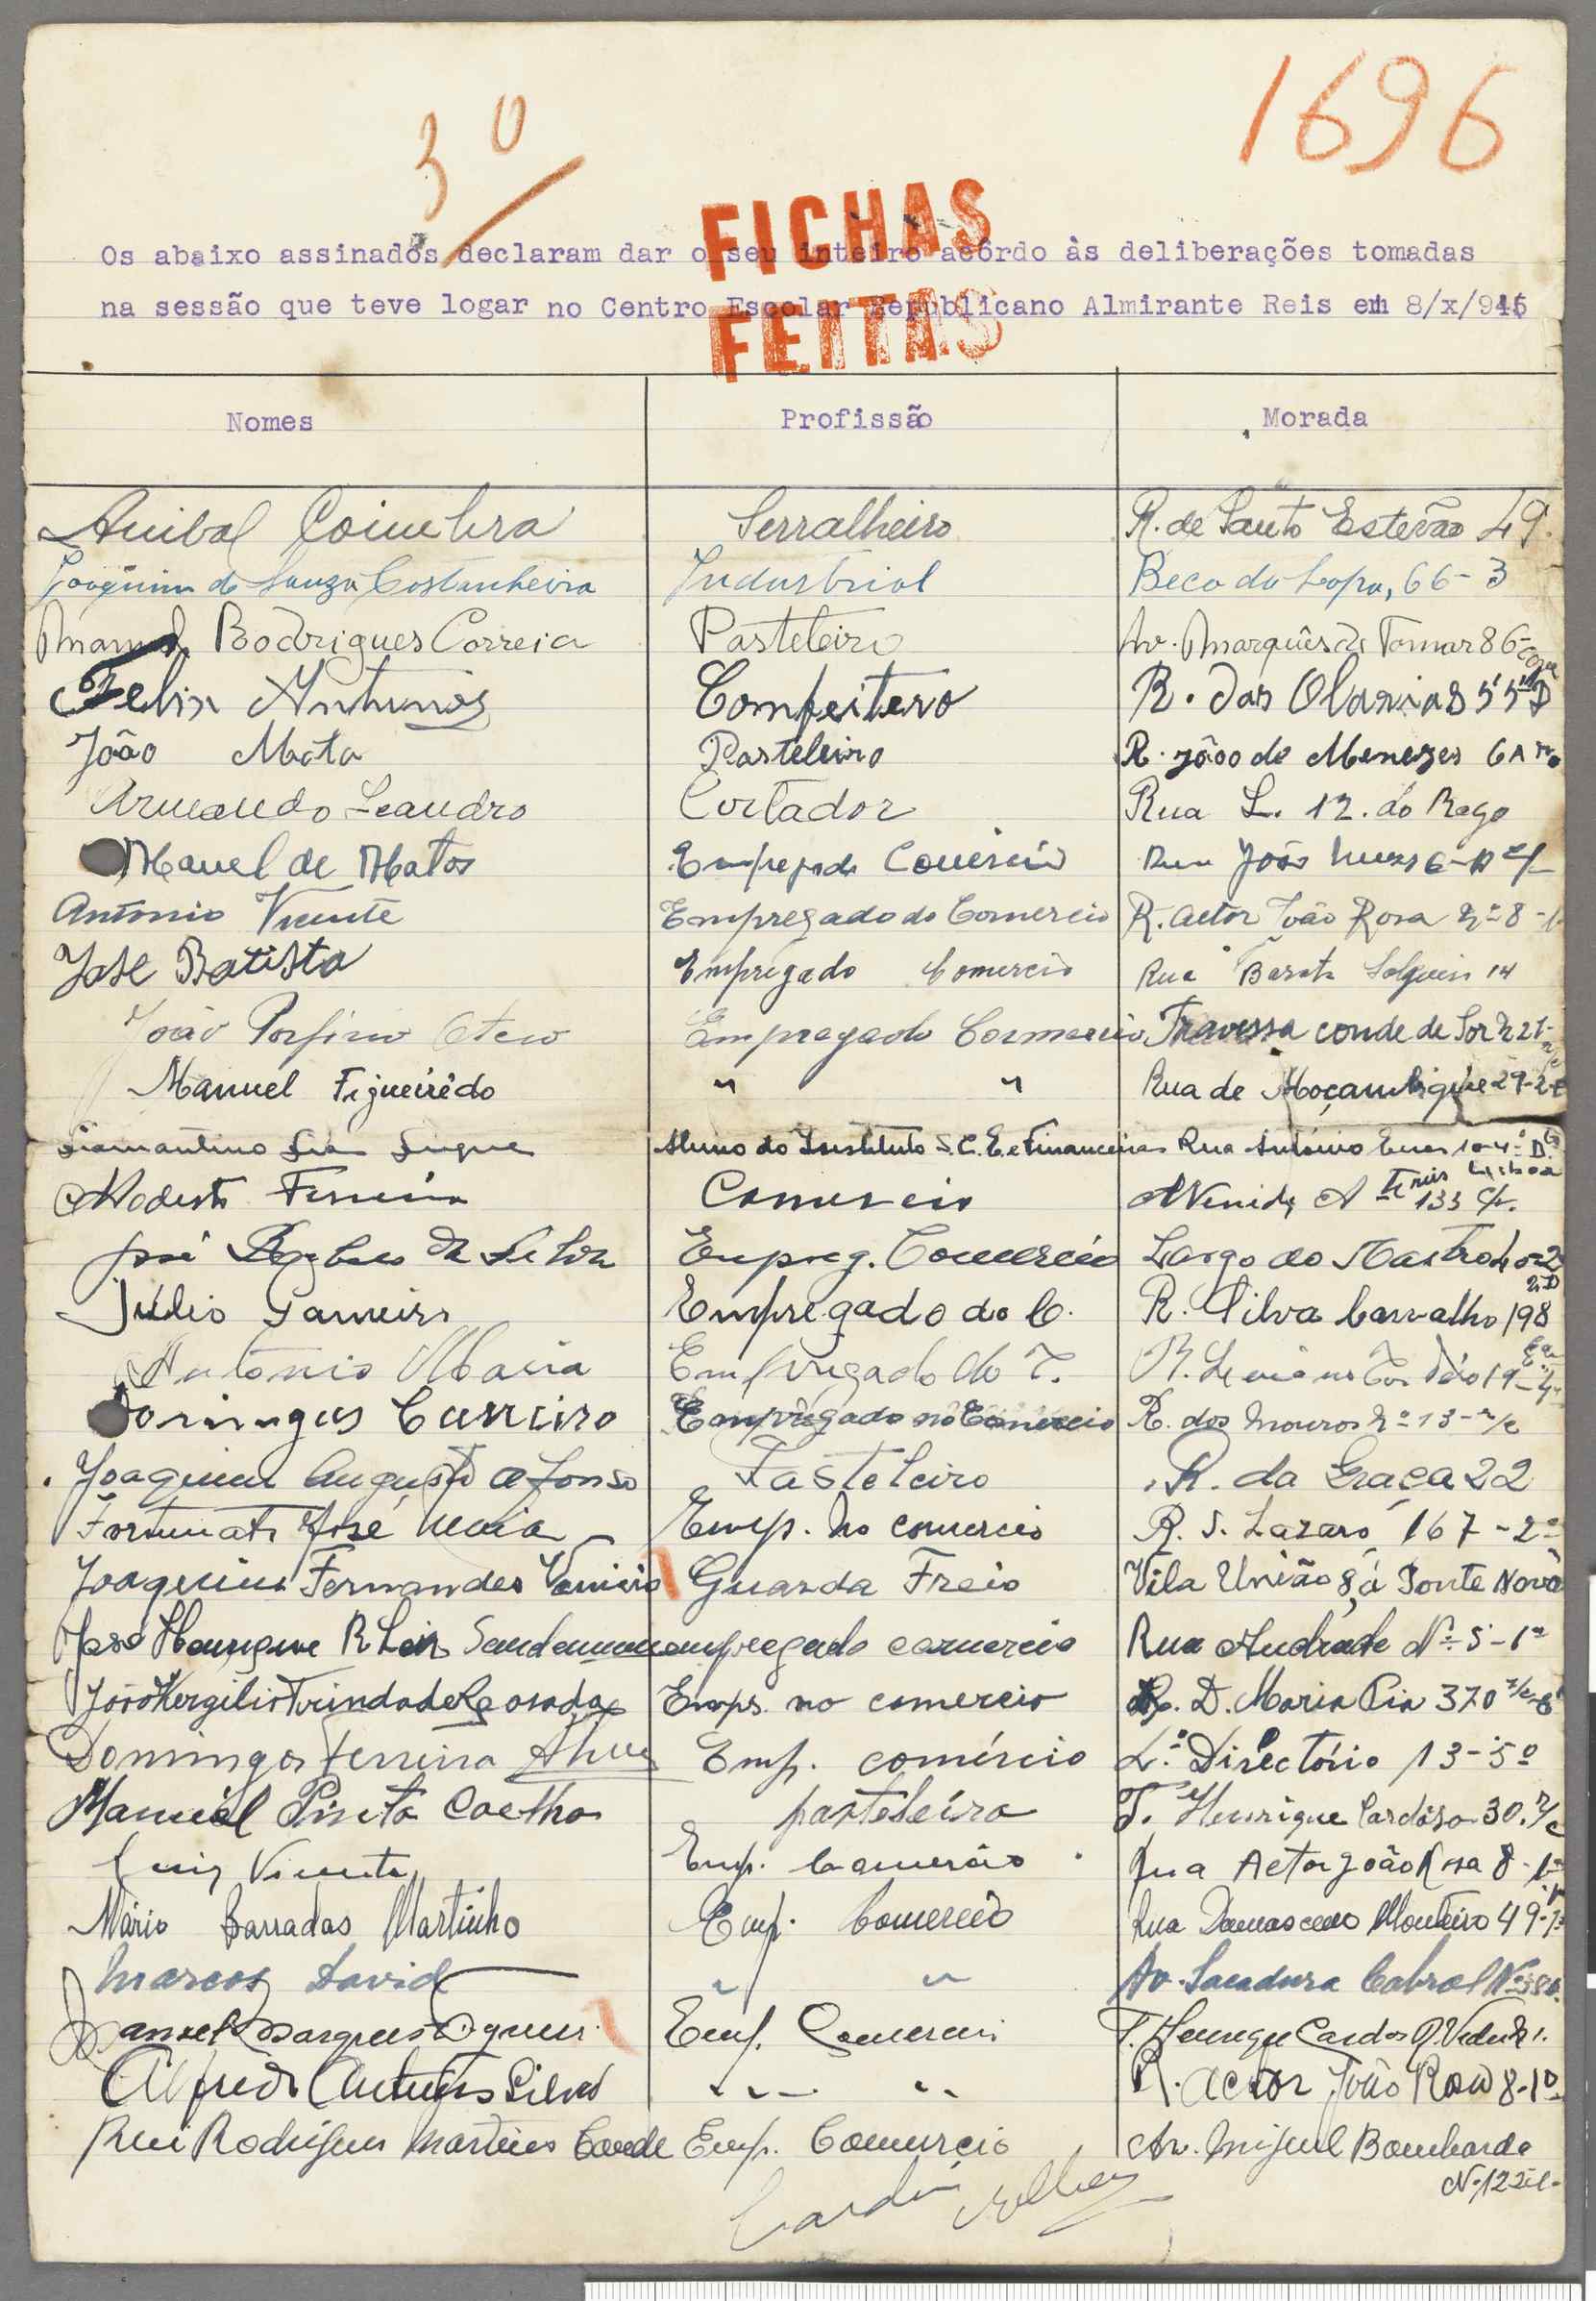 1696
3º
FICHAS
FEITAS
Os abaixo assinados declaram dar o seu inteiro acôrdo às deliberações tomadas
na sessão que teve logar no Centro Escolar Republicano Almirante Reis em 8/x/945
Nomes Profissão Morada
Anibal Coimbra Serralheiro R. de Santo Estevão 49.
Joaquim de Souza Castanheira Industrial Beco do 66-3
Manuel Rodrigues Correia Pasteleiro Av. Marquês de Tomar 86-cave
Felix Antunes Confeiteiro R. das Olarias 55
João Mata Pasteleiro R. João de Menezes 6A
Armando Leandro Cortador Rua L. 12. do Rego
Manuel de Matos Empregado Comercio Rua João
Antonio Vicente Empregado do Comercio R. Actor João Rosa Nº 8-1
José Batista Empregado Comercio Rua Barata Salgueiro 14
João Porfirio Empregado Comercio Travessa conde de Sor
Manuel Figueirêdo " " Rua de Moçambique 29-2
Diamantino Aluno do Instituto S.C.E. e Financeiras Rua António Enes 10-4º D. Lisboa
Modesto Ferreira Comercio Avenida A 133
José da Silva Empreg. Comercio Largo do Mastro
Júlio Gameiro Empregado do C. R. Silva Carvalho 198
António Maria Empregado do R. 19
Domingos Carreiro Empregado no Comercio R. dos Mouros Nº 13-r/c
Joaquim Augusto Afonso Pasteleiro R. da Graça 22
Fortunato José Maia Emp. no comercio R. S. Lazaro 167-2º
Joaquim Fernandes Guarda Freio Vila União 8, á Fonte Nova
José Henrique empregado comercio Rua Andrade Nº 5-1º
João Vergilio Trindade Emp. no comercio R. D. Maria Pia 370 r/c
Domingos Ferreira Alves Emp. comércio L.º Directório 13-5º
Manuel Pinto Coelho pasteleiro T. Henrique Cardoso 30. r/c
Luiz Vicente Emp. Comercio Rua Actor João Rosa 8-1º
Mário Barradas Martinho Emp. Comercio Rua Damasceno Monteiro 49
Marcos David " " Av. Sacadura Cabral
Manuel Marques Emp. Comercio T. Henrique Cardoso
Alfredo Antunes Silva " " R. Actor João Rosa 8-1º
Rui Rodrigues Martins Conde Emp. Comercio Av. Miguel Bombarda